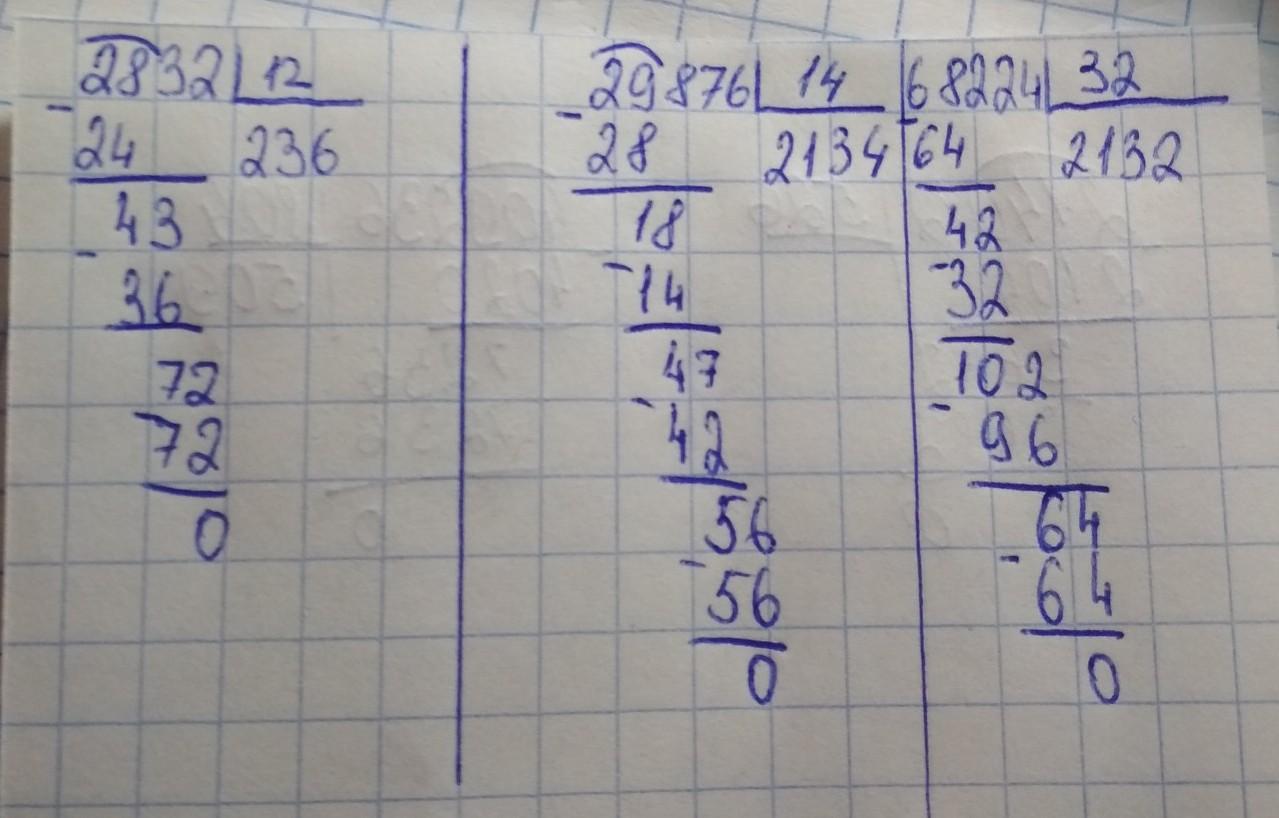 2832 12
- 24 236
43
- 36
72
- 72
0
29876 14
- 28 2134
18
- 14
47
- 42
56
- 56
0
68224 32
- 64 2132
42
- 32
102
- 96
64
- 64
0